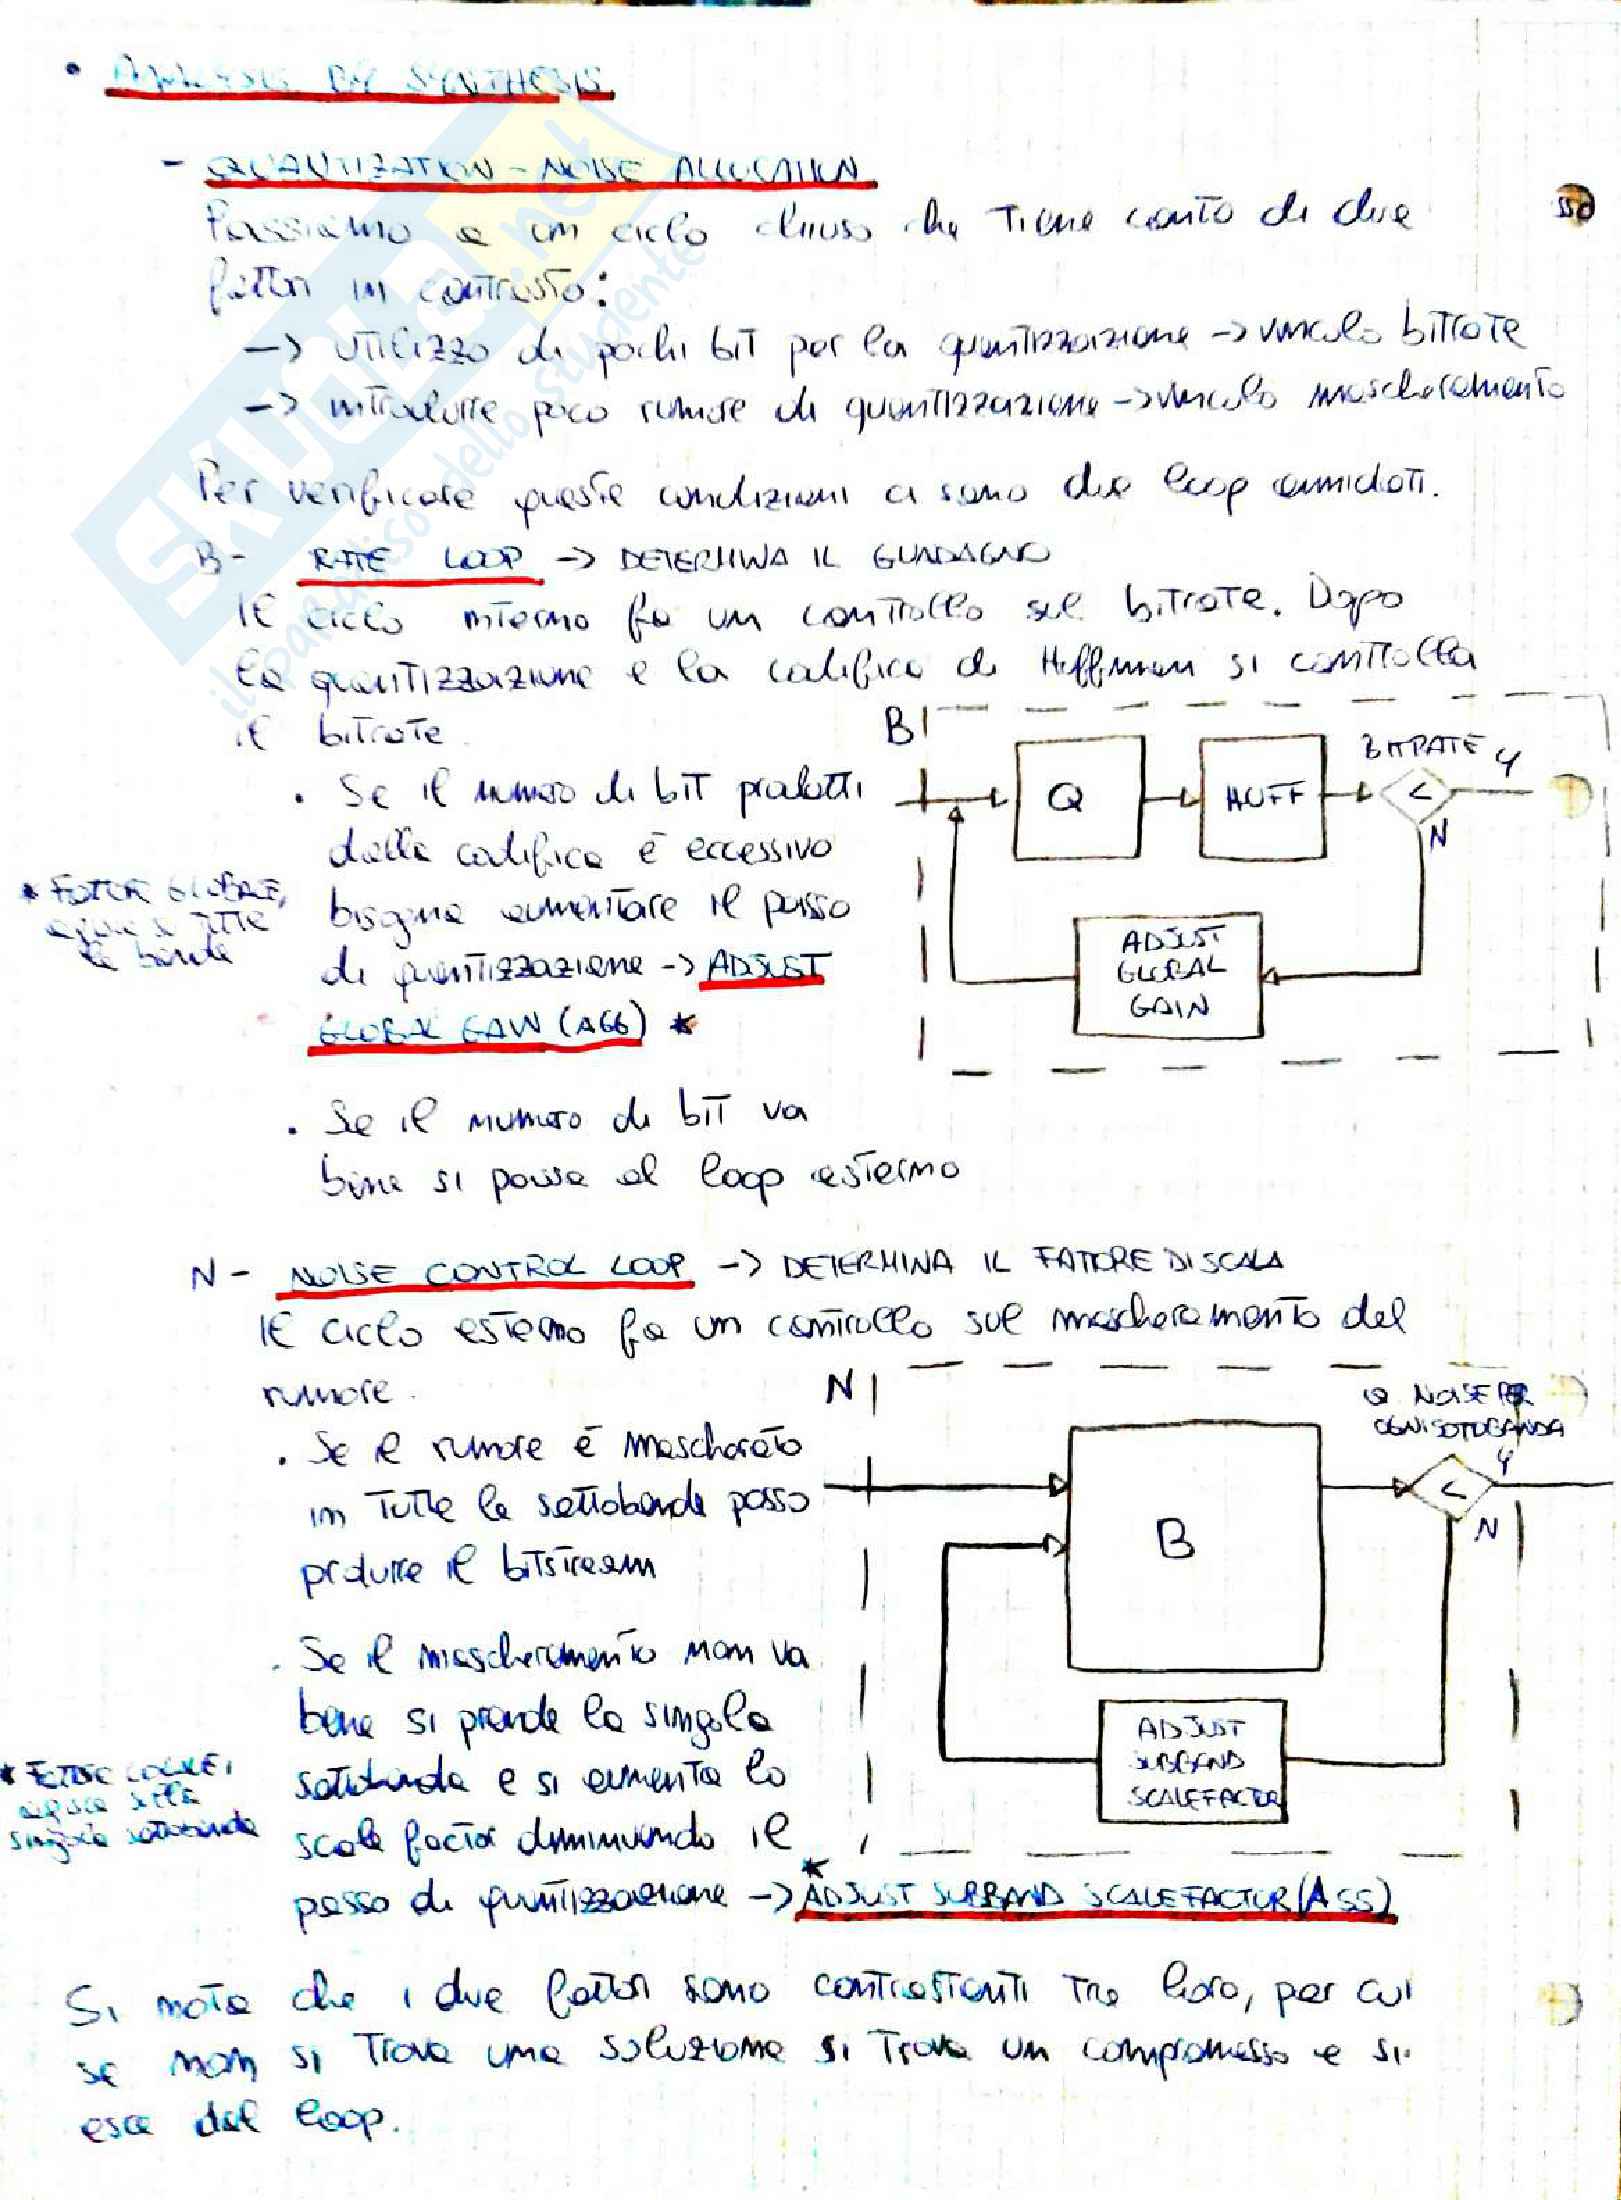 • ANALYSIS BY SYNTHESIS
- QUANTIZATION - NOISE ALLOCATION
Passiamo a un ciclo chiuso che tiene conto di due
fattori in contrasto:
-> utilizzo di pochi bit per la quantizzazione -> vincolo bitrate
-> introdurre poco rumore di quantizzazione -> vincolo mascheramento
Per verificare queste condizioni ci sono due loop annidati.
B - RATE LOOP -> DETERMINA IL GUADAGNO
Il ciclo interno fa un controllo sul bitrate. Dopo
la quantizzazione e la codifica di Huffman si controlla
il bitrate.
• Se il numero di bit prodotti
dalla codifica è eccessivo
bisogna aumentare il passo
di quantizzazione -> ADJUST
GLOBAL GAIN (AGG) *
* FATTORE GLOBALE,
agisce su tutte
le bande
B
Q
HUFF
BITRATE
<
Y
N
ADJUST
GLOBAL
GAIN
• Se il numero di bit va
bene si passa al loop esterno
N - NOISE CONTROL LOOP -> DETERMINA IL FATTORE DI SCALA
Il ciclo esterno fa un controllo sul mascheramento del
rumore.
• Se il rumore è mascherato
in tutte le sottobande posso
produrre il bitstream
• Se il mascheramento non va
bene si prende la singola
sottobanda e si aumenta lo
scale factor diminuendo il
passo di quantizzazione -> * ADJUST SUBBAND SCALEFACTOR (ASS)
* FATTORE LOCALE,
agisce sulla
singola sottobanda
N
B
Q NOISE PER
OGNI SOTTOBANDA
<
Y
N
ADJUST
SUBBAND
SCALEFACTOR
Si nota che i due fattori sono contrastanti tra loro, per cui
se non si trova una soluzione si trova un compromesso e si
esce dal loop.
SKUOLA.net
il paradiso dello studente